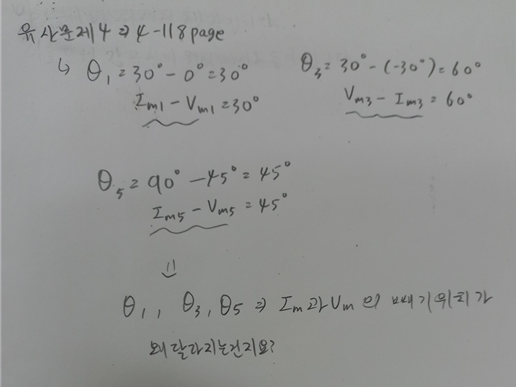 유사문제4 ⇒ 4-118page
↳ θ₁ = 30° - 0° = 30°
Im1 - Vm1 = 30°
θ₃ = 30° - (-30°) = 60°
Vm3 - Im3 = 60°
θ₅ = 90° - 45° = 45°
Im5 - Vm5 = 45°
⇓
θ₁, θ₃, θ₅ ⇒ Im과 Vm의 빼기위치가
왜 달라지는건지요?